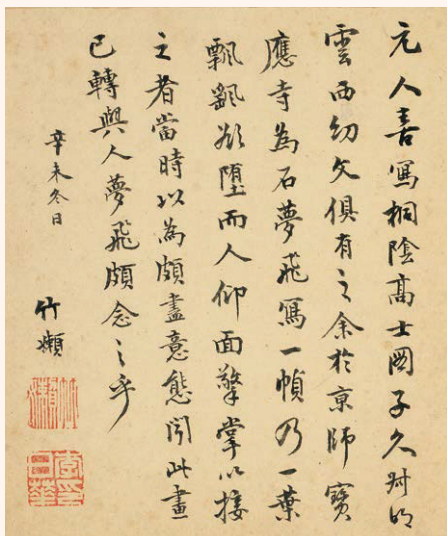 元人喜寫桐陰高士圖子久叔明
雲西幼文俱有之余於京師寶
應寺為石夢飛寫一幀乃一葉
飄飄欲墮而人仰面擎掌以接
之者當時以為頗盡意態聞此畫
已轉與人夢飛頗念之乎
辛未冬日
竹嬾
竹嬾
李日華印